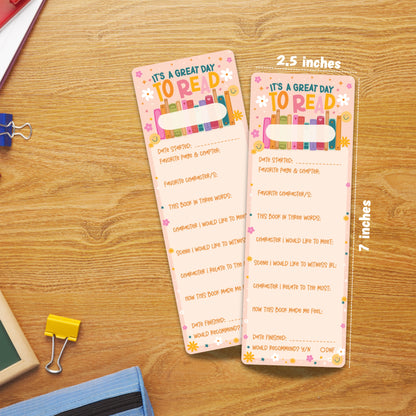 2.5 inches
IT'S A GREAT DAY
TO READ
DATE STARTED:
FAVORITE PAGE & COMPTER:
FAVORITE CHARACTER/S:
THIS BOOK IN THREE WORDS:
CHARACTER I WOULD LIKE TO MEET:
SCENE I WOULD LIKE TO WITNESS IRL:
CHARACTER I RELATE TO THE MOST:
HOW THIS BOOK MADE ME FEEL:
DATE FINISHED:
WOULD RECOMMEND?
IT'S A GREAT DAY
TO READ
DATE STARTED:
FAVORITE PAGE & COMPTER:
FAVORITE CHARACTER/S:
THIS BOOK IN THREE WORDS:
CHARACTER I WOULD LIKE TO MEET:
SCENE I WOULD LIKE TO WITNESS IRL:
CHARACTER I RELATE TO THE MOST:
HOW THIS BOOK MADE ME FEEL:
DATE FINISHED:
WOULD RECOMMEND? Y/N
7 inches